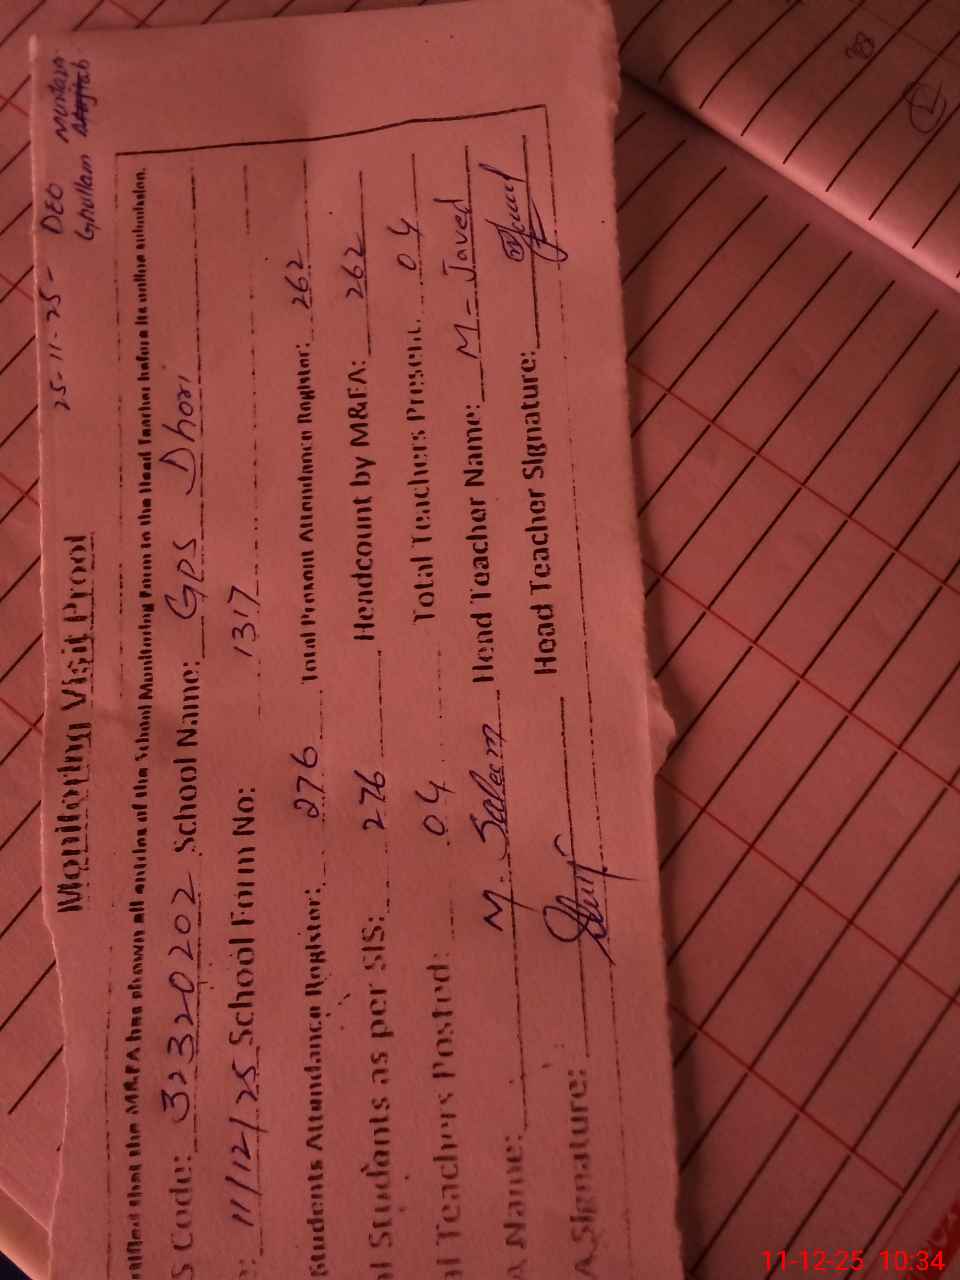 25-11-25- DEO Murtaza
Ghullam
Monitoring Visit Proof
that the M&EA has shown all entries of the School Monitoring Form to the Head Teacher before its online submission.
S Code: 32320202 School Name: GPS Dhori
e: 11/12/25 School Form No: 1317
Students Attendance Register: 276 Total Present Attendance Register: 262
l Students as per SIS: 276 Headcount by M&EA: 262
al Teachers Posted: 04 Total Teachers Present: 04
A Name: M. Saleem Head Teacher Name: M-Javed
A Signature: Head Teacher Signature:
11-12-25 10:34